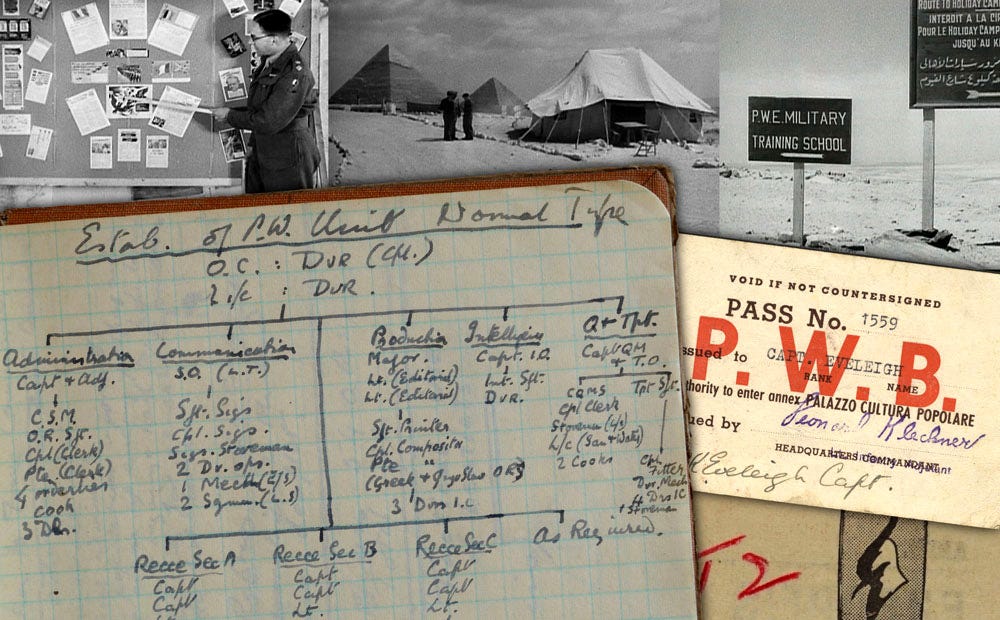 ROUTE TO HOLIDAY CAMP
INTERDIT A LA CIR
POUR LE HOLIDAY CAMP
JUSQU'AU K
P.W.E. MILITARY
TRAINING SCHOOL
Estab. of P.W. Unit Normal Type
O.C. : DVR
2 i/c : DVR.
Administration
Capt & Adj.
C.S.M.
O.R. Sgt.
Cpl (Clerk)
Pte (Clerk)
4 orderlies
cook
3 Drs.
Communication
S.O. (L.T.)
Sgt. Sigs
Cpl. Sigs.
Sigs. Storeman
2 Dr. ops.
1 Mech (E/S)
2 Sgmn. (L.S)
Production
Major.
Lt. (Editorial)
Lt. (Editorial)
Sgt. Printer
Cpl. Compositor
Pte "
(Greek & Jugoslav ORs)
3 Dvrs I.C
Intelligence
Capt. I.O.
Int. Sgt.
DVR.
Q & Tpt.
Capt QM
& T.O.
CQMS
Cpl Clerk
Storeman
L/C (San & Water)
2 Cooks
Tpt Sgt.
Cpl
Fitter
Dvr. Mech
4 Drs I C
1 Storeman
Recce Sec A
Capt
Capt
Recce Sec B
Capt
Capt
Lt.
Recce Sec C
Capt
Capt
Lt.
As Required.
VOID IF NOT COUNTERSIGNED
PASS No. 1559
P.W.B.
ssued to CAPT. EVELEIGH
RANK NAME
thority to enter annex PALAZZO CULTURA POPOLARE
ued by
HEADQUARTERS COMMANDANT
Eveleigh Capt.
T2